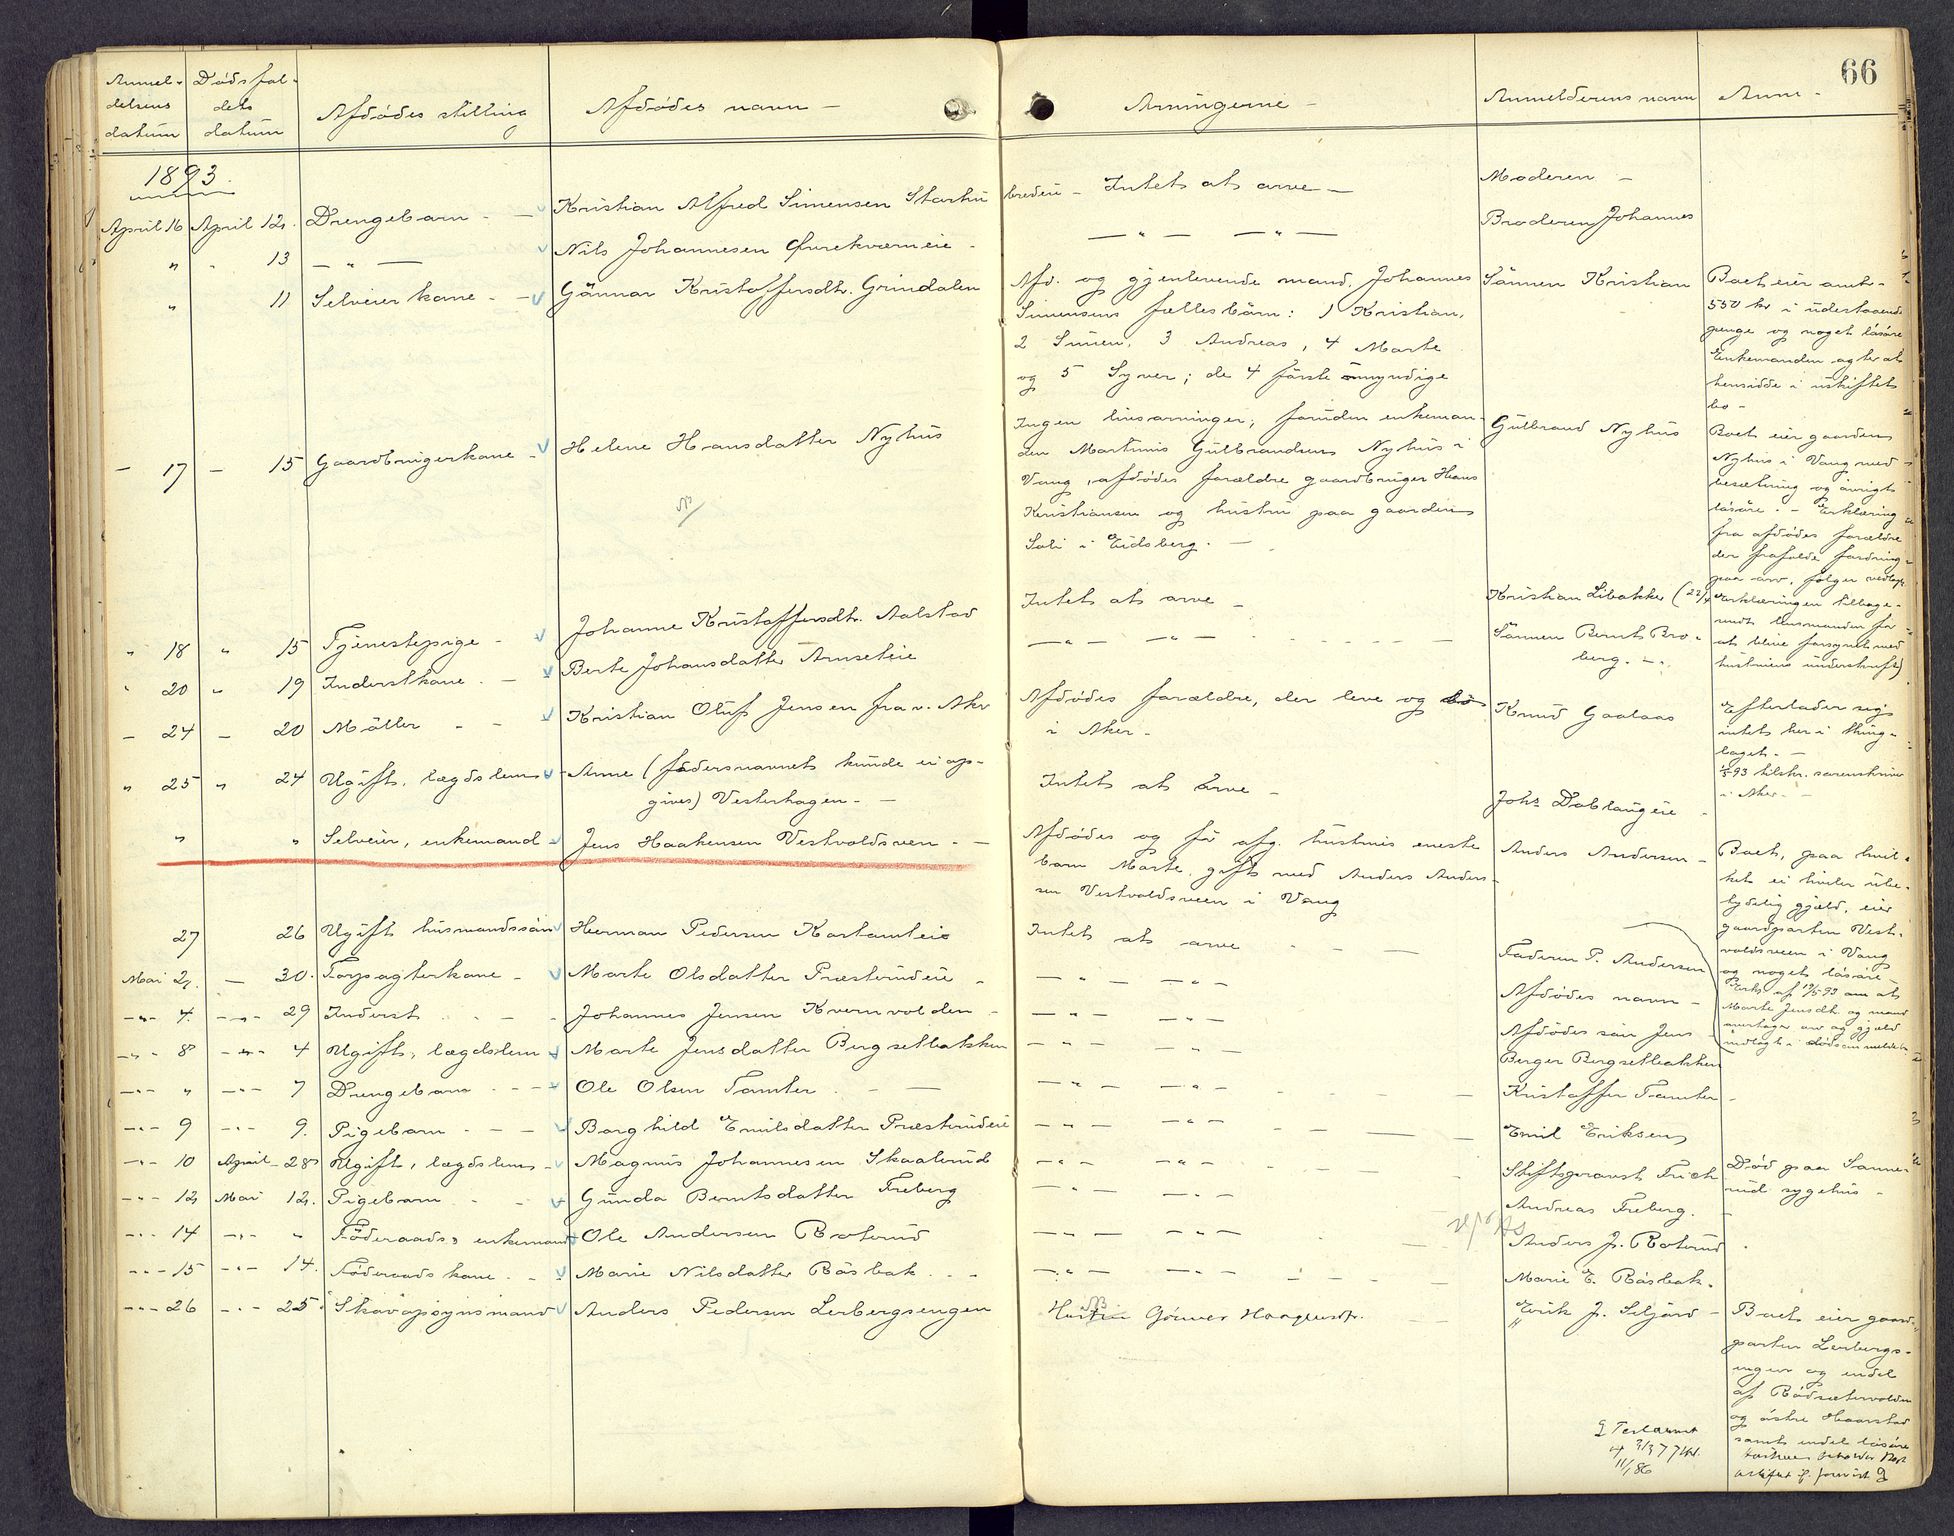 66
Anmel-
delsens
datum
Dødsfal-
dets
datum
Afdødes stilling
Afdødes navn -
Arvingerne -
Anmelderens navn
Anm -
1893.
April 16 April 12. Drengebarn - Kristian Alfred Simensen Starhu breden - Intet at arve - Moderen -
" " 13 - " - Nils Johannesen Furekværneie - - " - - " - Broderen Johannes
" 11 Selveierkone - Gunnar Kristoffersdtr. Grindalen
Afd. og gjenlevende mand, Johannes
Simensens fællesbørn: 1 Kristian,
2 Simen, 3 Andreas, 4 Marte
og 5 Syver; de 4 første umyndige
Sønnen Kristian
Boet eier omtr.
550 kr i udestaaende
penge og noget løsøre
Enkemanden agter at
hensidde i uskiftet
bo -
- 17 - 15 Gaardbrugerkone - Helene Hansdatter Nyhus
Ingen livsarvinger, foruden enkeman-
den Martinus Gulbrandsen Nyhus i
Vang, afdødes forældre gaardbruger Hans
Kristiansen og hustru paa gaarden
Soli i Eidsberg. -
Gulbrand Nyhus
Boet eier gaarden
Nyhus i Vang med
besætning og øvrigt
løsøre. - Erklæring
fra afdødes forældre
der frafalde fordring
paa arv, følger vedlagt
Erklæringen tilbage-
sendt lensmanden for
at blive forsynet med
hustruens underskrift)
" 18 " 15 Tjenestepige - Johanne Kristoffersdtr. Aalstad Intet at arve - Kristian Libakke (22/4
" 20 " 19 Inderstkone - Berte Johansdatter Arnseteie - " - - " - Sønnen Bernt Bro-
berg. -
- 24 - 20 Møller - Kristian Oluf Jensen fra v. Aker
Afdødes forældre, der leve og bo
i Aker -
Knud Gaalaas
Efterlader sig
intet her i thing-
laget. -
1/5 93 tilskr. sorenskriver
i Aker. -
" 25 " 24 Ugift, lægdslem - Anne (fadersnavnet kunde ei op-
gives) Vesterhagen - -
Intet at arve -
Johs Doblangeie -
" " Selveier, enkemand - Jens Haakensen Vestvoldsveen - -
Afdødes og før afg. hustrus eneste
barn Marte, gift med Anders Anders-
sen Vestvoldsveen i Vang
Anders Andersen -
Boet, paa hvil-
ket ei hviler ube-
tydelig gjæld, eier
gaardparten Vest-
voldsveen i Vang
og noget løsøre -
Erkl. af 19/5 93 om at
Marte Jensdtr. og mand
overtager arv og gjæld
indlagt i dødsanmeldelsen
27 26 Ugift husmandssøn Herman Pedersen Kostamleie Intet at arve - - Faderen P. Andersen
Mai 2. - 30. Forpagterkone - Marte Olsdatter Præsterudeie - - " - - " - Afdødes navn -
- " - 4. - " - 29 Inderst - Johannes Jensen Kvernvolden - - " - - " - Afdødes søn Jens
- " - 8 - " - 4 Ugift, lægdslem Marte Jensdatter Bergsetbakken - " - - " - Berger Bergsetbakken
- " - " - " - 7 Drengebarn - - Ole Olsen Tomter - - - " - - " - Kristoffer Tomter -
- " - 9 - " - 9. Pigebarn - - - Borghild Emilsdatter Præsterudeie - " - - " - Emil Eriksen
- " - 10 April - 28 Ugift, lægdslem - Magnus Johannesen Skaalerud - " - - " - Stiftsprovst Frich
Død paa Sanne-
rud sygehus -
- " - 12 Mai 12. Pigebarn - Gunda Berntsdatter Freberg - " - - " - Andreas Freberg. -
- " - 14 - " - " Føderaads, enkemand Ole Andersen Roterud - " - - " - Anders J. Roterud
- " - 15 - " - 14. Føderaadskone - - Marie Nilsdatter Røsbak - - - " - - " - Marie E. Røsbak.
- " - 26 - " - 25 Skovopsynsmand Anders Pedersen Lerbergsengen
NB
Hustru Gouver
Erik J. Seljord -
Boet eier gaard-
parten Lerbergs-
engen og endel
af Rødsætervolden
og østre Haarstad
samt endel løsøre
Testament